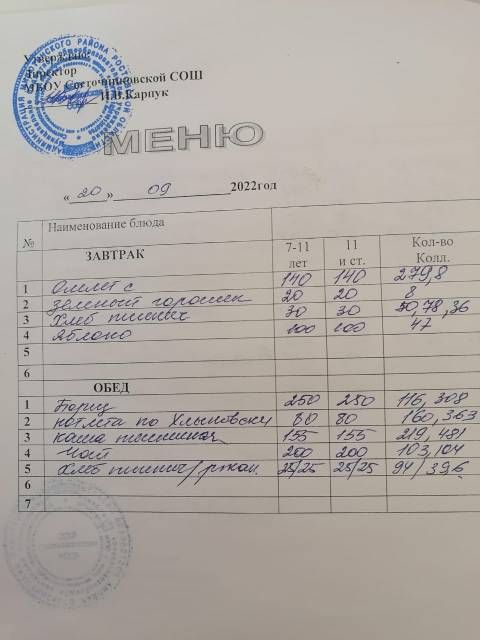 Утверждаю
Директор
МБОУ Состочинновской СОШ
И.В.Карпук
МЕНЮ
« 20 » 09 2022год
№ Наименование блюда
ЗАВТРАК 7-11 лет 11 и ст. Кол-во Колл.
1 Омлет с 140 140 279,8
2 зеленый горошек 20 20 8
3 Хлеб пшенич 30 30 50,78,36
4 Яблоко 100 100 47
5
6
ОБЕД
1 Борщ 250 250 116,308
2 котлета по Хлыновски 80 80 160,363
3 каша пшеничная 155 155 219,481
4 Чай 200 200 103,104
5 Хлеб пшенич/ржан. 25/25 25/25 94/39,6
6
7